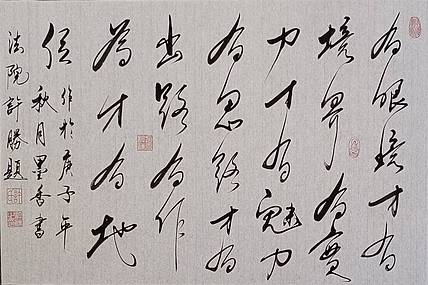 有眼境才有
境界有實
力才有魅力
有思路才有
出路有作
為才有地
位
作於庚子年
秋月墨香書
法院許勝題